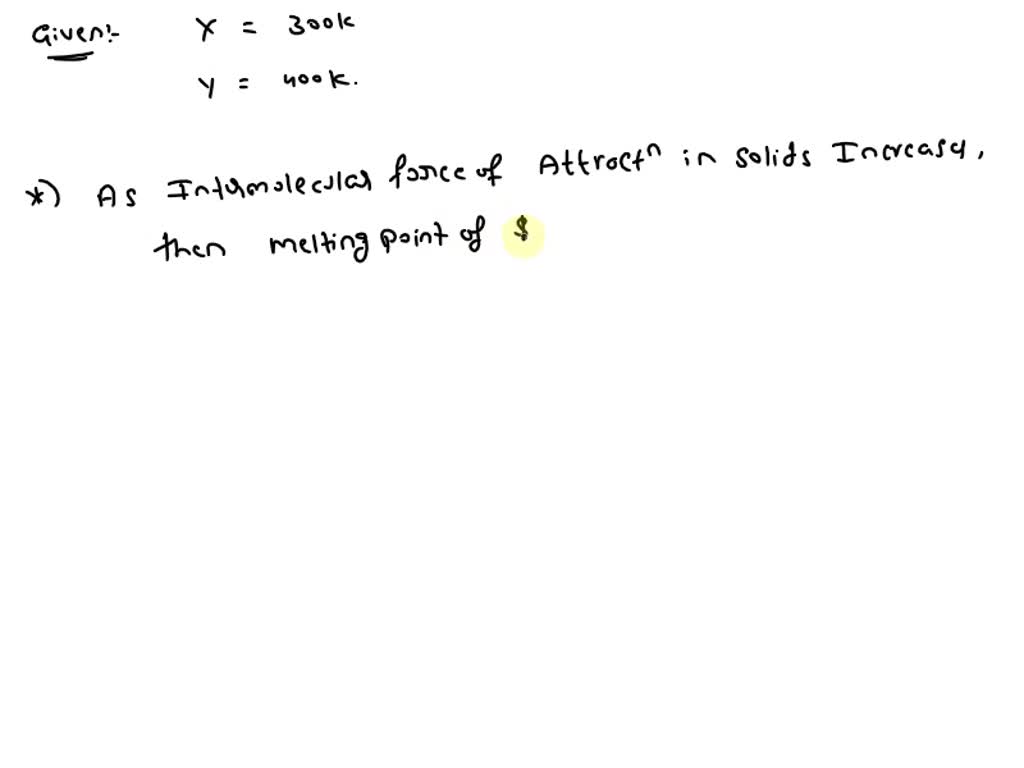 Given:- X = 300k
Y = 400k.
*) As Intermolecular force of Attractn in solids Increase,
then melting point of s